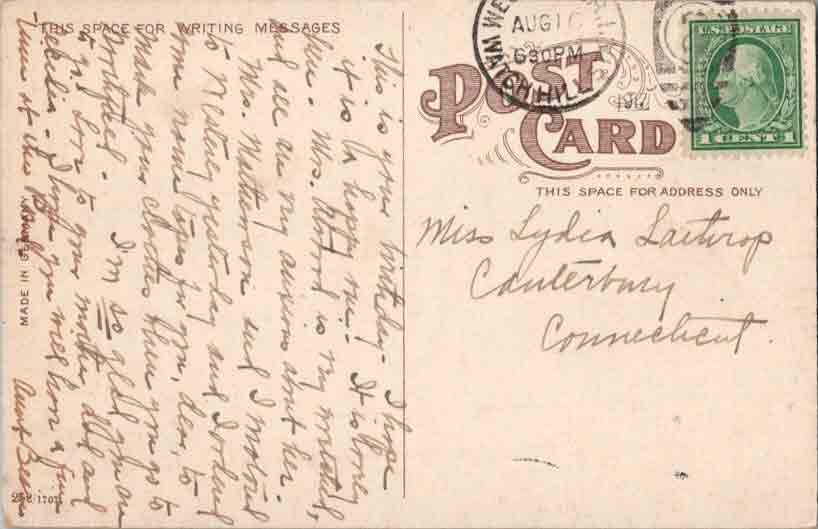 THIS SPACE FOR WRITING MESSAGES
This is your birthday - I hope
it is a happy one - It is lovely
here - Mrs. is my
and all are my anxious about her -
Mrs. Matterson and I motored
to Westerly yesterday and I ordered
some name tapes for you, dear, to
make your clothes when you go to
Northfield - I'm so glad you are
to go. Love to your mother, dad and
- I hope you will have a fine
time at the
Aunt
MADE IN GERMANY
POST
CARD
THIS SPACE FOR ADDRESS ONLY
AUG 16
630PM
1917
WATCH HILL
U.S. POSTAGE
1 CENT 1
Miss Lydia Lathrop
Canterbury
Connecticut.